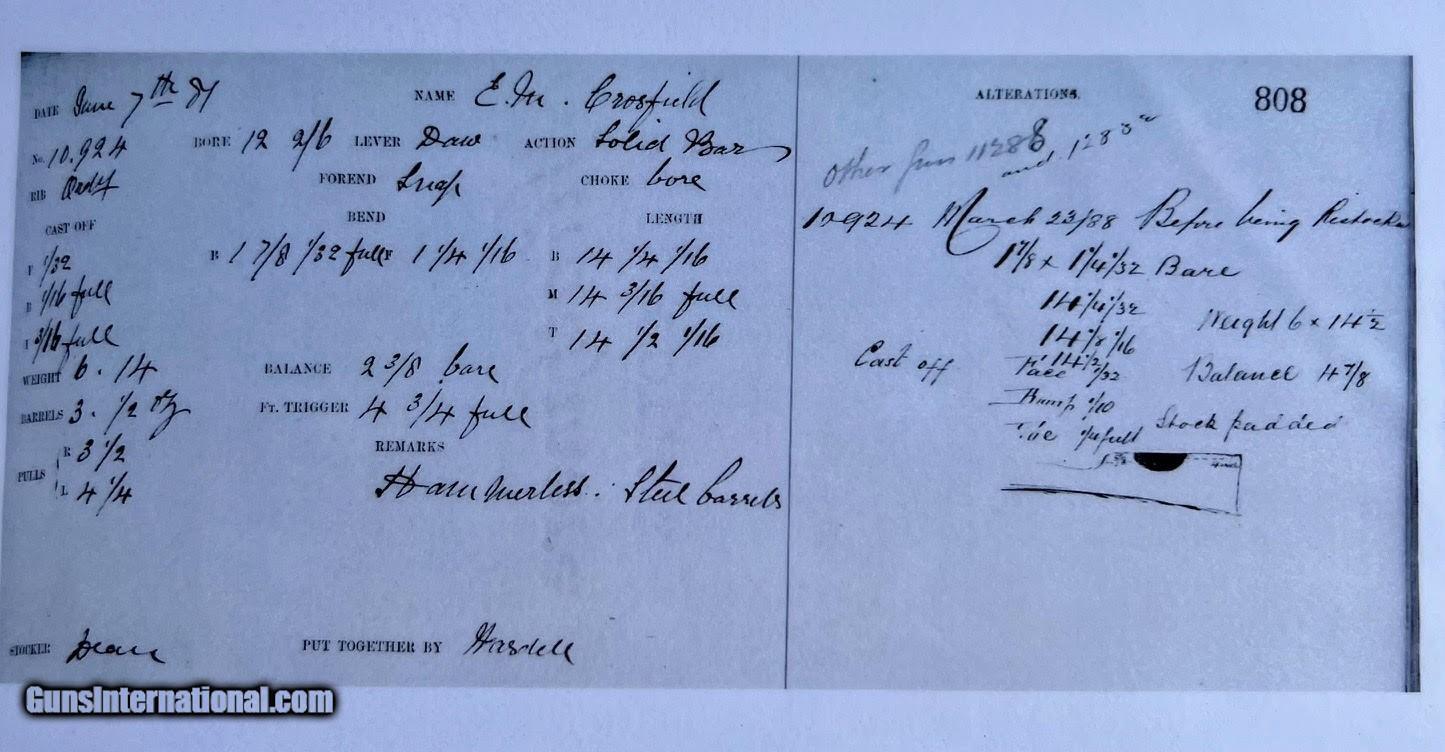 DATE June 7th 87 NAME E. M. Crosfield
No. 10,924 BORE 12 2/6 LEVER Daw ACTION Solid Bar
RIB Ordy FOREND Snap CHOKE bore
CAST OFF BEND LENGTH
F 1/32 B 1 7/8 1/32 full F 1 1/4 1/16 B 14 1/4 1/16
B 1/16 full M 14 3/16 full
T 3/16 full T 14 1/2 1/16
WEIGHT 6.14 BALANCE 2 3/8 bare
BARRELS 3. 1/2 FT. TRIGGER 4 3/4 full
PULLS R 3 1/2 REMARKS
L 4 1/4 Hammerless. Steel barrels
STOCKER Dean PUT TOGETHER BY
ALTERATIONS. 808
Other Gun 11288
and
10924 March 23/88 Before being Restocked
1 7/8 x 1 1/4 1/32 Bare
14 1/4 1/32 Weight 6 x 14 1/2
14 1/8 1/16
14 1/2
Cast off Face 1/32 Balance 4 7/8
Bump 1/10
Toe 1/4 full Stock padded
GunsInternational.com